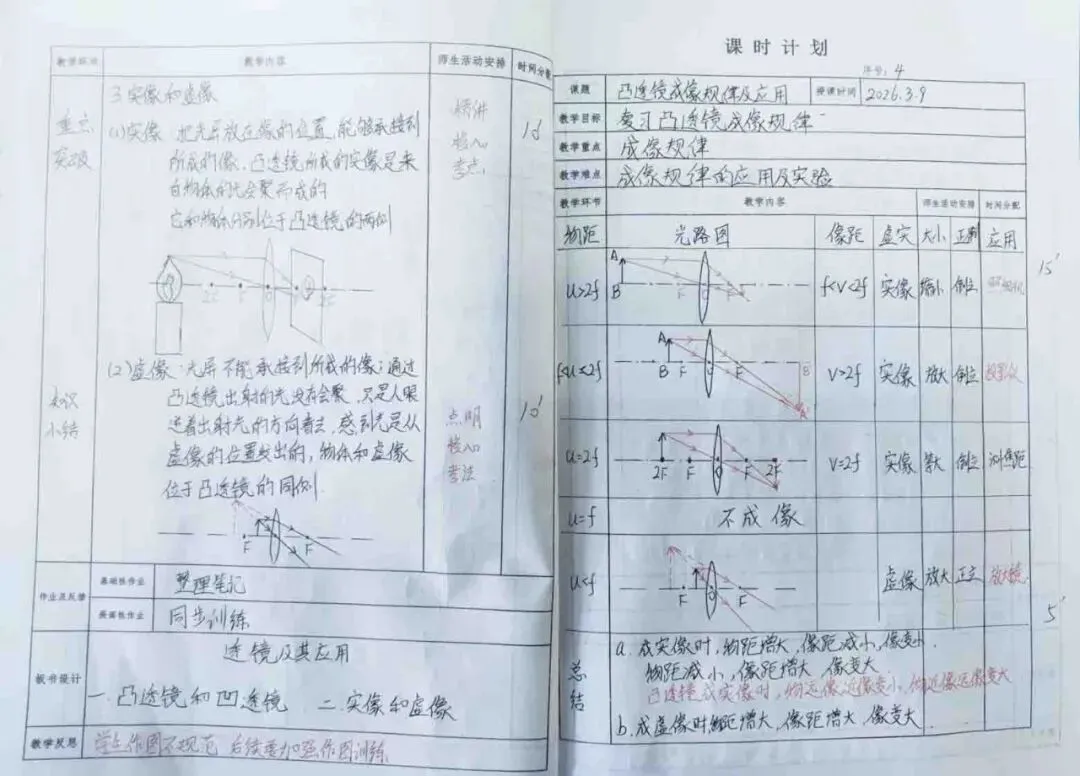 教学环节 教学内容 师生活动安排 时间分配
重点
突破
3.实像和虚像
(1)实像:把光屏放在像的位置,能够承接到
所成的像,凸透镜所成的实像是来
自物体的光会聚而成的
它和物体分别位于凸透镜的两侧
精讲
考点
2F F O F 2F
(2)虚像:光屏不能承接到所成的像;通过
凸透镜出射的光没有会聚,只是人眼
逆着出射光的方向看去,感到光是从
虚像的位置发出的,物体和虚像
位于凸透镜的同侧.
知识
小结
点明
考法
10'
F F
作业及反馈 基础性作业 整理笔记
同步训练
板书设计
透镜及其应用
一.凸透镜和凹透镜 二.实像和虚像
教学反思 学生作图不规范 后续要加强作图训练
课时计划
序号: 4
课题 凸透镜成像规律及应用 授课时间 2026.3.9
教学目标 复习凸透镜成像规律
教学重点 成像规律
教学难点 成像规律的应用及实验
教学环节 教学内容 师生活动安排 时间分配
物距 光路图 像距 虚实 大小 正倒 应用
15'
u>2f A B F O F f<v<2f 实像 缩小 倒立 照相机
f<u<2f A B F O F B' A' v>2f 实像 放大 倒立 投影仪
u=2f 2F F O F 2F v=2f 实像 等大 倒立 测焦距
u=f 不成像
u<f F O F 虚像 放大 正立 放大镜
5'
总结
a.成实像时,物距增大,像距减小,像变小.
物距减小,像距增大,像变大
凸透镜成实像时,物远像近像变小,物近像远像变大
b.成虚像时物距增大,像距增大,像变大.